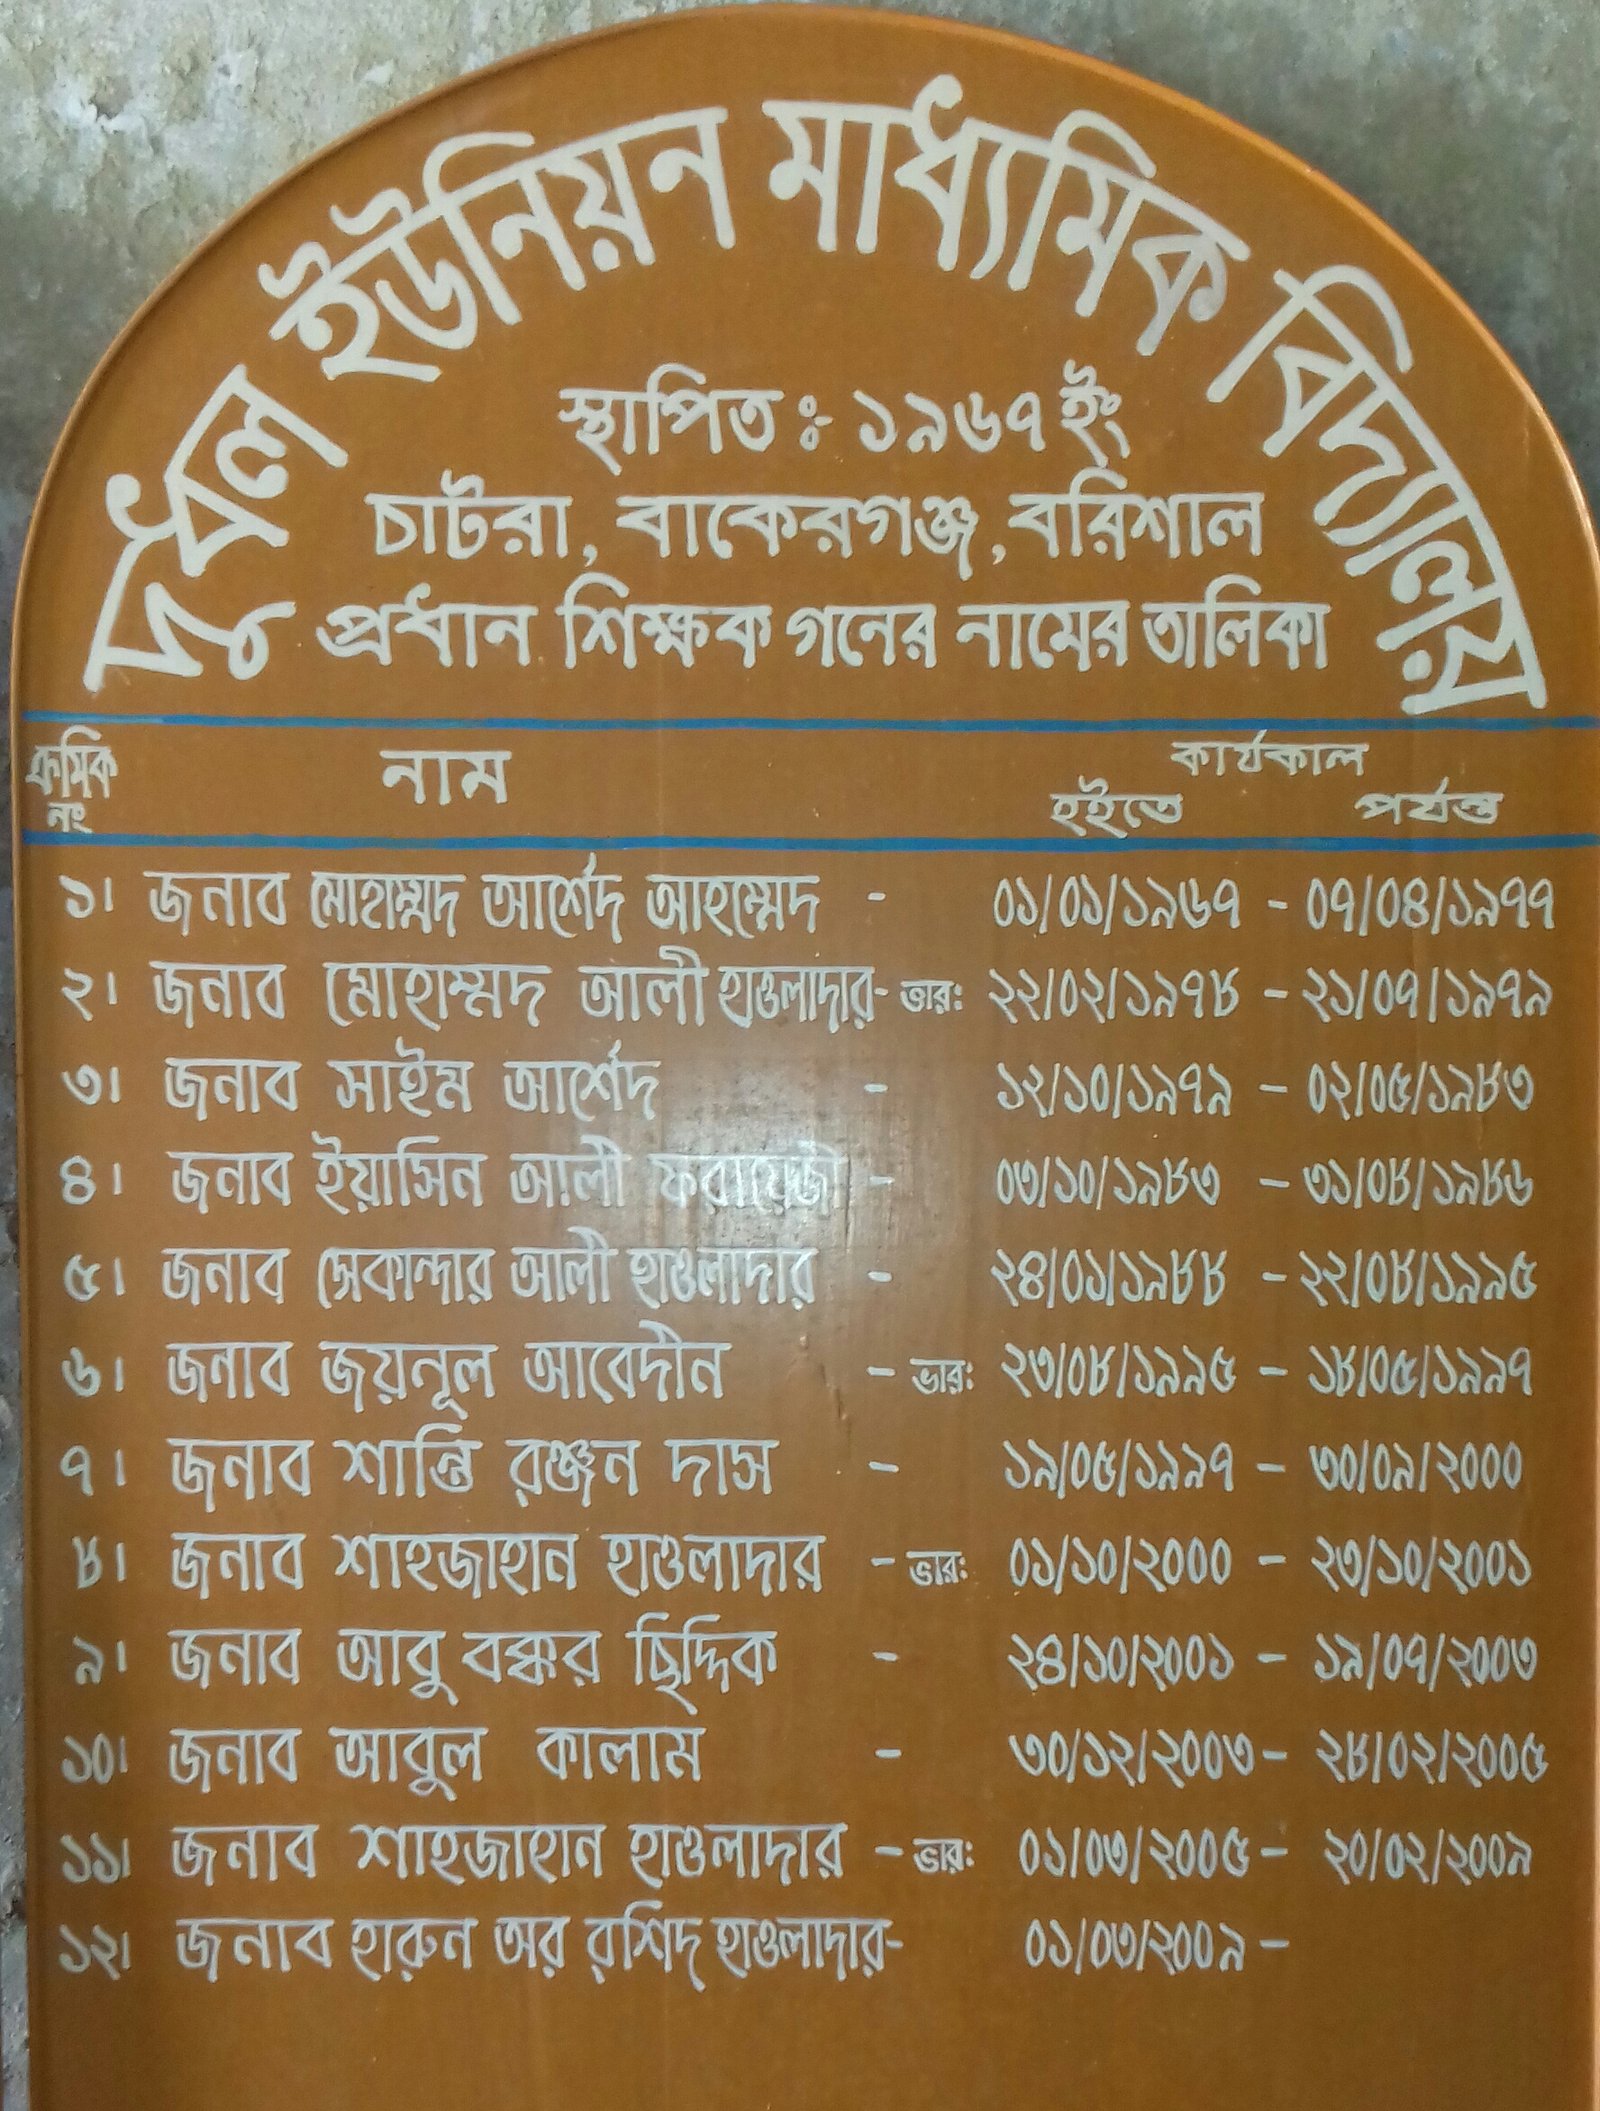 দুর্ধল ইউনিয়ন মাধ্যমিক বিদ্যালয়
স্থাপিত ঃ- ১৯৬৭ ইং
চাটরা, বাকেরগঞ্জ, বরিশাল
প্রধান শিক্ষক গনের নামের তালিকা
ক্রমিক নং নাম কার্যকাল
হইতে পর্যন্ত
১। জনাব মোহাম্মদ আর্শেদ আহম্মেদ - ০১/০১/১৯৬৭ - ০৭/০৪/১৯৭৭
২। জনাব মোহাম্মদ আলী হাওলাদার - ভার: ২২/০২/১৯৭৮ - ২১/০৭/১৯৭৯
৩। জনাব সাইম আর্শেদ - ১২/১০/১৯৭৯ - ০২/০৫/১৯৮৩
৪। জনাব ইয়াসিন আলী ফরায়েজী - ০৩/১০/১৯৮৩ - ৩১/০৮/১৯৮৬
৫। জনাব সেকান্দার আলী হাওলাদার - ২৪/০১/১৯৮৮ - ২২/০৮/১৯৯৫
৬। জনাব জয়নূল আবেদীন - ভার: ২৩/০৮/১৯৯৫ - ১৮/০৫/১৯৯৭
৭। জনাব শান্তি রঞ্জন দাস - ১৯/০৫/১৯৯৭ - ৩০/০৯/২০০০
৮। জনাব শাহজাহান হাওলাদার - ভার: ০১/১০/২০০০ - ২৩/১০/২০০১
৯। জনাব আবু বক্কর ছিদ্দিক - ২৪/১০/২০০১ - ১৯/০৭/২০০৩
১০। জনাব আবুল কালাম - ৩০/১২/২০০৩ - ২৮/০২/২০০৫
১১। জনাব শাহজাহান হাওলাদার - ভার: ০১/০৩/২০০৫ - ২০/০২/২০০৯
১২। জনাব হারুন অর রশিদ হাওলাদার - ০১/০৩/২০০৯ -